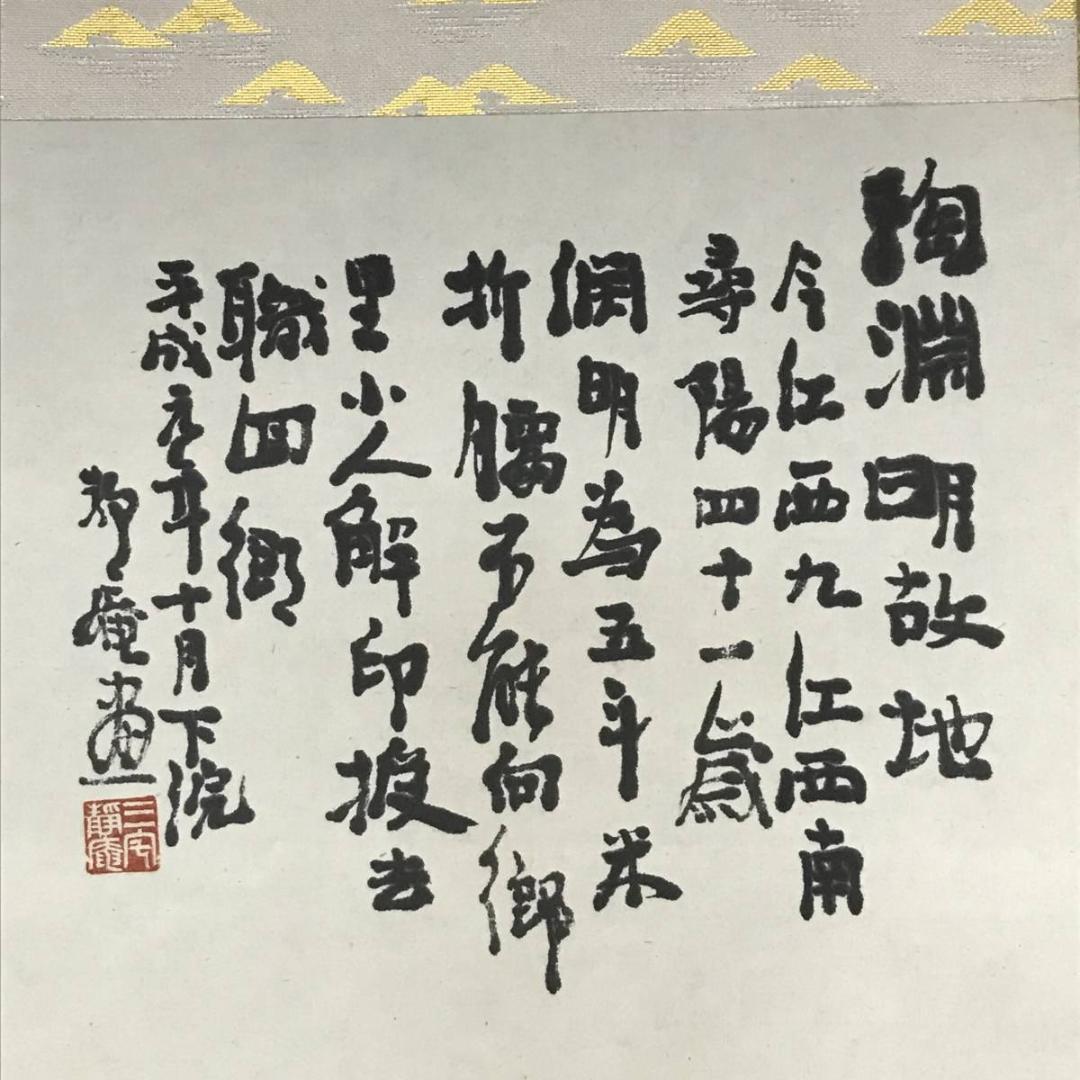 陶淵明故地
今江西九江西南
尋陽四十一歳
淵明為五斗米
折腰不能向鄉
里小人解印授去
職回鄉
平成元年十月下浣
静庵畫
三宅
靜庵